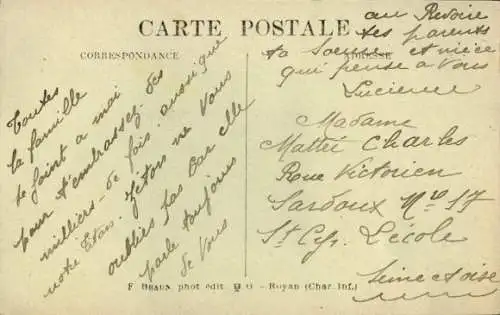 CARTE POSTALE
CORRESPONDANCE
ADRESSE
au Revoire
tes parents
ta Soeur et niece
qui pense a Vous
Lucienne
Toutes
la famille
se joint a moi
pour t'embrassez des
milliers de fois. aussi que
notre Etan. Jétan ne Vous
oublies pas Car elle
parle toujours
de Vous
Madame
Mattei Charles
Roue Victorien
Sardoux No 17
St Cyr L'école
Seine et oise
F. BRAUN phot édit. - ROYAN (Char. Inf.)